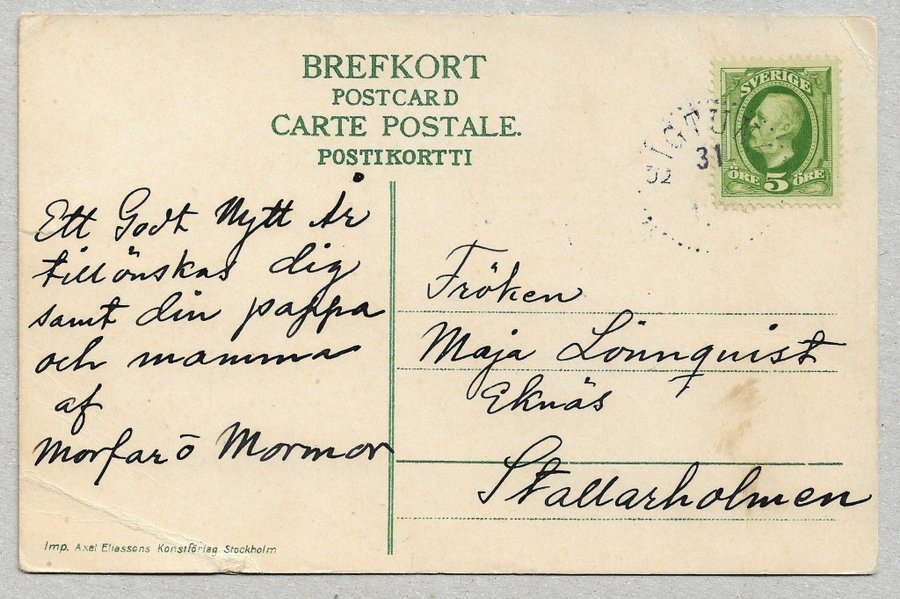 BREFKORT
POSTCARD
CARTE POSTALE.
POSTIKORTTI
SVERIGE
ÖRE 5 ÖRE
SIGTUNA
31
Ett Godt Nytt År
tillönskas dig
samt din pappa
och mamma
af
Morfar o Mormor
Fröken
Maja Lönnquist
Eknäs
Stallarholmen
Imp. Axel Eliassons Konstförlag Stockholm